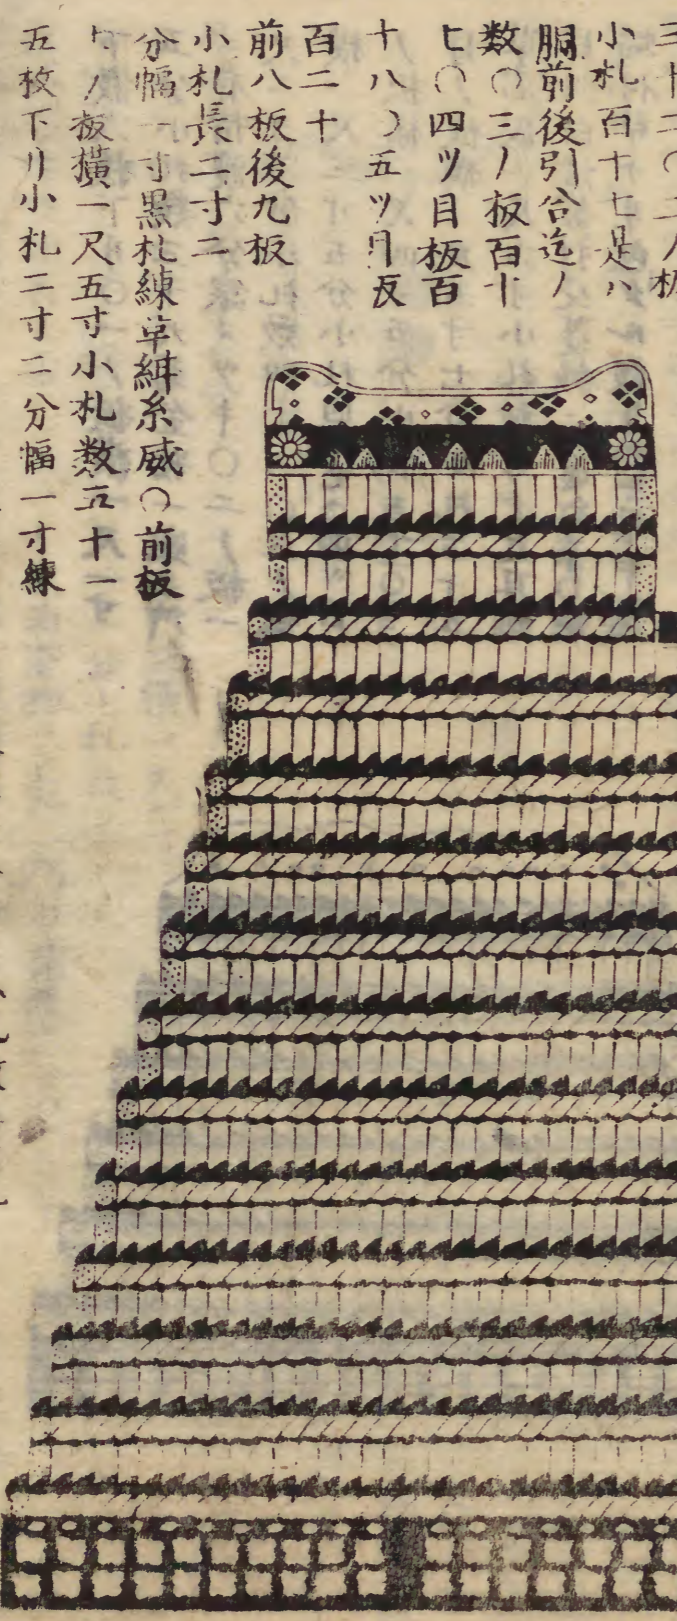 三十二〇二ノ板
小札百十七是ハ
胴前後引合迄ノ
数〇三ノ板百十
七〇四ツ目板百
十八〇五ツ目板
百二十
前八板後九板
小札長二寸二
分幅一寸黒札練革緋糸威〇前板
ノ板横一尺五寸小札数五十一
五枚下リ小札二寸二分幅一寸練